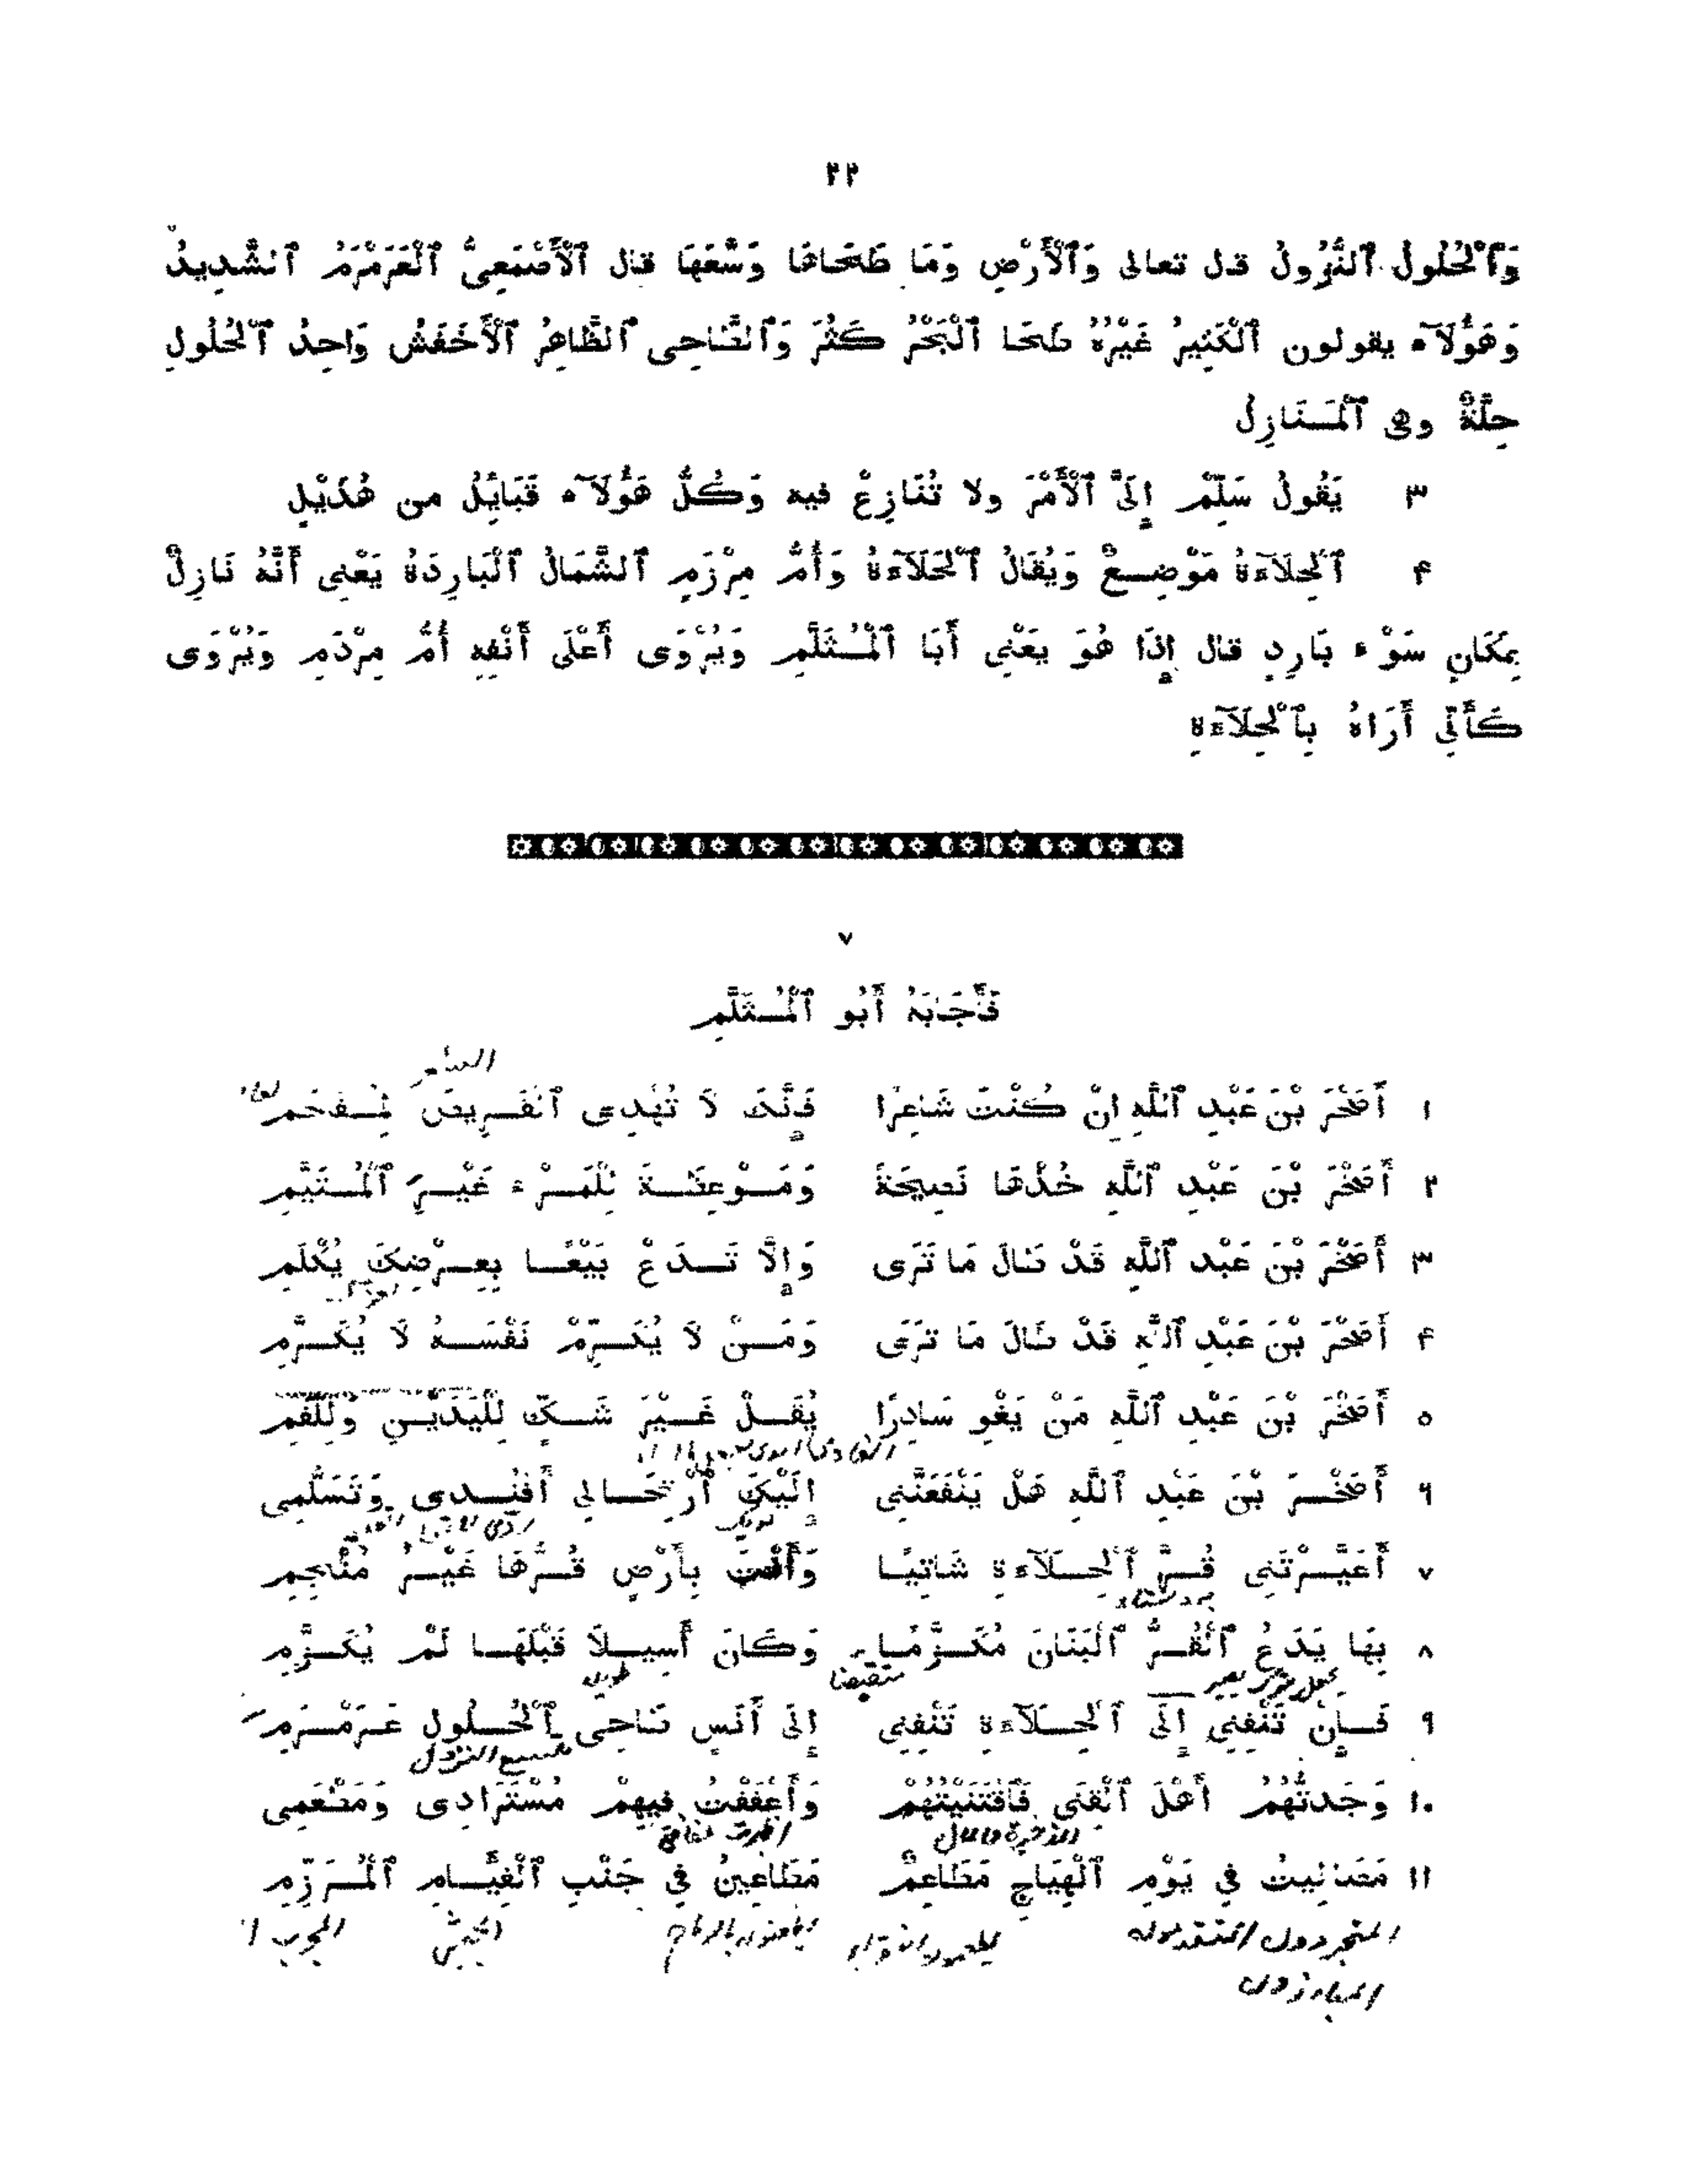 ٢٢
وَٱلْحُلُولُ ٱلنُّزُولُ قال تعالى وَٱلْأَرْضِ وَمَا طَحَاهَا وَسَّعَهَا قال ٱلْأَصْمَعِىُّ ٱلْعَرَمْرَمُ ٱلشَّدِيدُ
وَهَؤُلَآء يقولون ٱلْكَثِيرُ غَيْرُهُ طَحَا ٱلْبَحْرُ كَثُرَ وَٱلطَّاحِى ٱلظَّاهِرُ ٱلْأَخْفَشُ وَاحِدُ ٱلْحُلُولِ
حِلَّةٌ وهى ٱلْمَنَازِلُ
٣ يَقُولُ سَلِّمْ إِلَىَّ ٱلْأَمْرَ ولا تُنَازِعْ فيه وَكُلُّ هَؤُلَآء قَبَايِلُ من هُذَيْلٍ
۴ ٱلْحِلَآءَةُ مَوْضِعٌ وَيُقَالُ ٱلْحَلَآءَةُ وَأُمُّ مِرْزَمٍ ٱلشَّمَالُ ٱلْبَارِدَةُ يَعْنِى أَنَّهُ نَازِلٌ
بِمَكَانِ سَوْء بَارِدٍ قال إِذَا هُوَ يَعْنِى أَبَا ٱلْمُثَلَّمِ وَيُرْوَى أَعْلَى أَنْفِهِ أُمُّ مِرْدَمِ وَيُرْوَى
كَأَنِّى أَرَاهُ بِٱلْحِلَآءَةِ
٧
فَأَجَابَهُ أَبُو ٱلْمُثَلَّمِ
١ أَصَخْرَ بْنَ عَبْدِ ٱللَّهِ إِنْ كُنْتَ شَاعِرًا فَإِنَّكَ لَا تُهْدِى ٱلْقَرِيضَ لِمُفْحَمِ
٢ أَصَخْرَ بْنَ عَبْدِ ٱللَّهِ خُذْهَا نَصِيحَةً وَمَوْعِظَةً لِلْمَرْء غَيْرِ ٱلْمُتَيَّمِ
٣ أَصَخْرَ بْنَ عَبْدِ ٱللَّهِ قَدْ طَالَ مَا تَرَى وَإِلَّا تَدَعْ بَيْعًا بِعِرْضِكَ يُكْلَمِ
۴ أَصَخْرَ بْنَ عَبْدِ ٱللَّهِ قَدْ طَالَ مَا تَرَى وَمَنْ لَا يُكَرِّمْ نَفْسَهُ لَا يُكَرَّمِ
٥ أَصَخْرَ بْنَ عَبْدِ ٱللَّهِ مَنْ يَغْوِ سَادِرًا يُقَلْ غَيْرَ شَكٍّ لِلْيَدَيْنِ وَلِلْفَمِ
٦ أَصَخْرَ بْنَ عَبْدِ ٱللَّهِ هَلْ يَنْفَعَنَّنِى إِلَيْكَ ٱرْتِحَالِى أَفْنُدِى وَتَسَلُّمِى
٧ أَعَيَّرْتَنِى قُرَّ ٱلْحِلَآءَةِ شَاتِيًا وَأَنْتَ بِأَرْضٍ قُرُّهَا غَيْرُ مُنْجِمِ
٨ بِهَا يَدَعُ ٱلْقُرُّ ٱلْبَنَانَ مُكَزَّمًا وَكَانَ أَسِيلًا قَبْلَهَا لَمْ يُكَزَّمِ
متقبضا طويلا
٩ فَإِنْ تَنْفِنِى إِلَى ٱلْحِلَآءَةِ تَنْفِنِى إِلَى أَنَسٍ طَاحِى ٱلْحُلُولِ عَرَمْرَمِ
١٠ وَجَدتُّهُمُ أَهْلَ ٱلْقِنَى فَٱقْتَنَيْتُهُمْ وَأَعْفَفْتُ فِيهِمْ مُسْتَرَادِى وَمَطْعَمِى
١١ مَصَالِيتُ فِي يَوْمِ ٱلْهِيَاجِ مَطَاعِمٌ مَطَاعِينُ فِي جَنْبِ ٱلْفِئَامِ ٱلْمُرَزِّمِ
المتجردون المتقدمون يطاعنون بالرماح الجيش
المبارزون